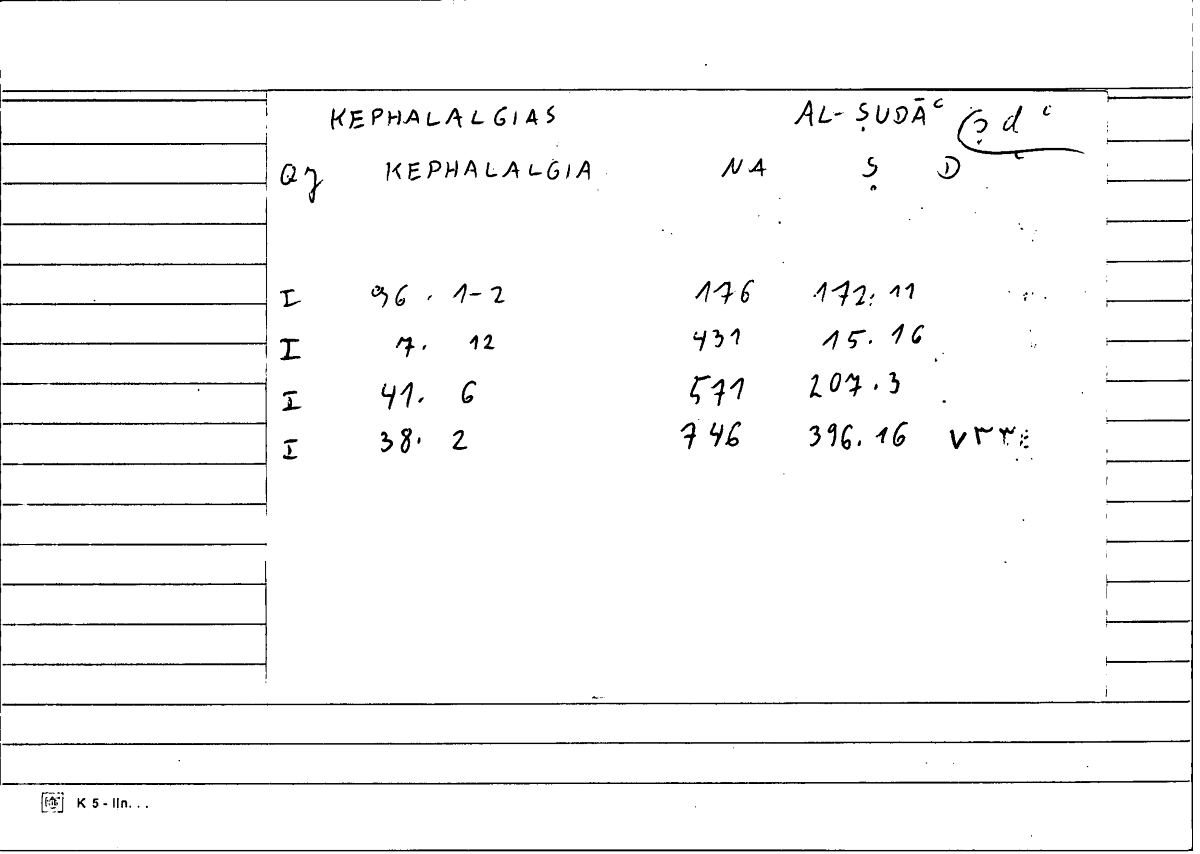 KEPHALALGIAS AL-ṢUDĀʿ ṣdʿ
Qγ KEPHALALGIA NA Ṣ D ʿ
I 96. 1-2 176 172. 11
I 7. 12 431 15. 16
I 41. 6 571 207.3
I 38. 2 746 396.16
K 5 - lin...